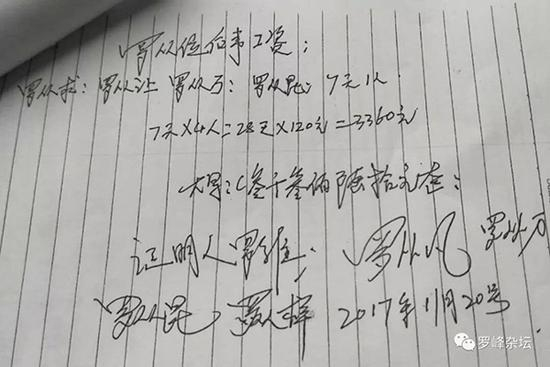 罗从信伯韦工资:
罗从求: 罗从让 罗从万: 罗从昆: 7天1人
7天×4人=28天×120元=3360元
大写:(叁千叁佰陆拾元整:
证明人罗维: 罗从风 罗从万
罗从昆 罗从择 2017年11月20号
罗峰杂坛